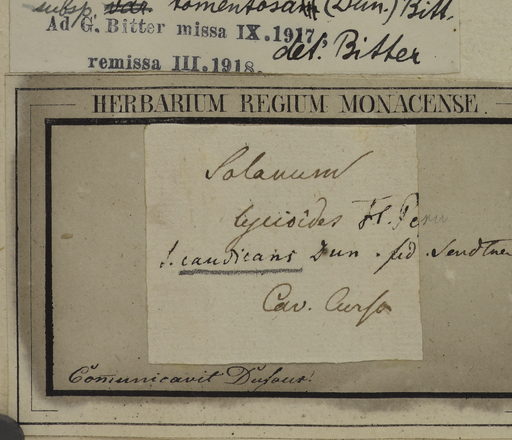 subsp. var. tomentosa (Dun.) Bitt.
Ad G. Bitter missa IX.1917
det. Bitter
remissa III.1918.
HERBARIUM REGIUM MONACENSE.
Solanum
lycioides Fl. Peru
S. candicans Dun. fid. Sendtner
Cav. Curso
Comunicavit Dufour.